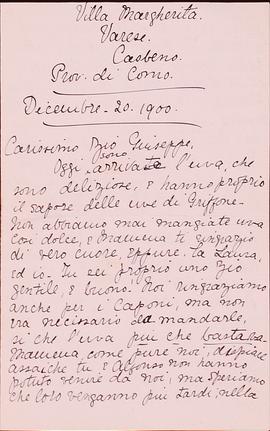 Villa Margherita.
Varese.
Casbeno.
Prov. di Como.
Decembre - 20. 1900.
Carissimo Zio Giuseppe,
sono
Oggi arrivate l'uva, che
sono deliziose, e hanno proprio
il sapore delle uve di Griffone -
Non abbiamo mai mangiate uva
così dolce, e Mamma ti ringrazia
di vero cuore, eppure la Laura,
ed io. Tu sei proprio uno Zio
gentile, e buono. Noi ringraziamo
anche per i Caponi, ma non
era necessario da mandarle,
si che l'uva più che basta
Mamma, come pure noi, dispiace
assai che tu e Alfonso non hanno
potuto venire da noi, ma speriamo
che loro venganno più tardi, nella